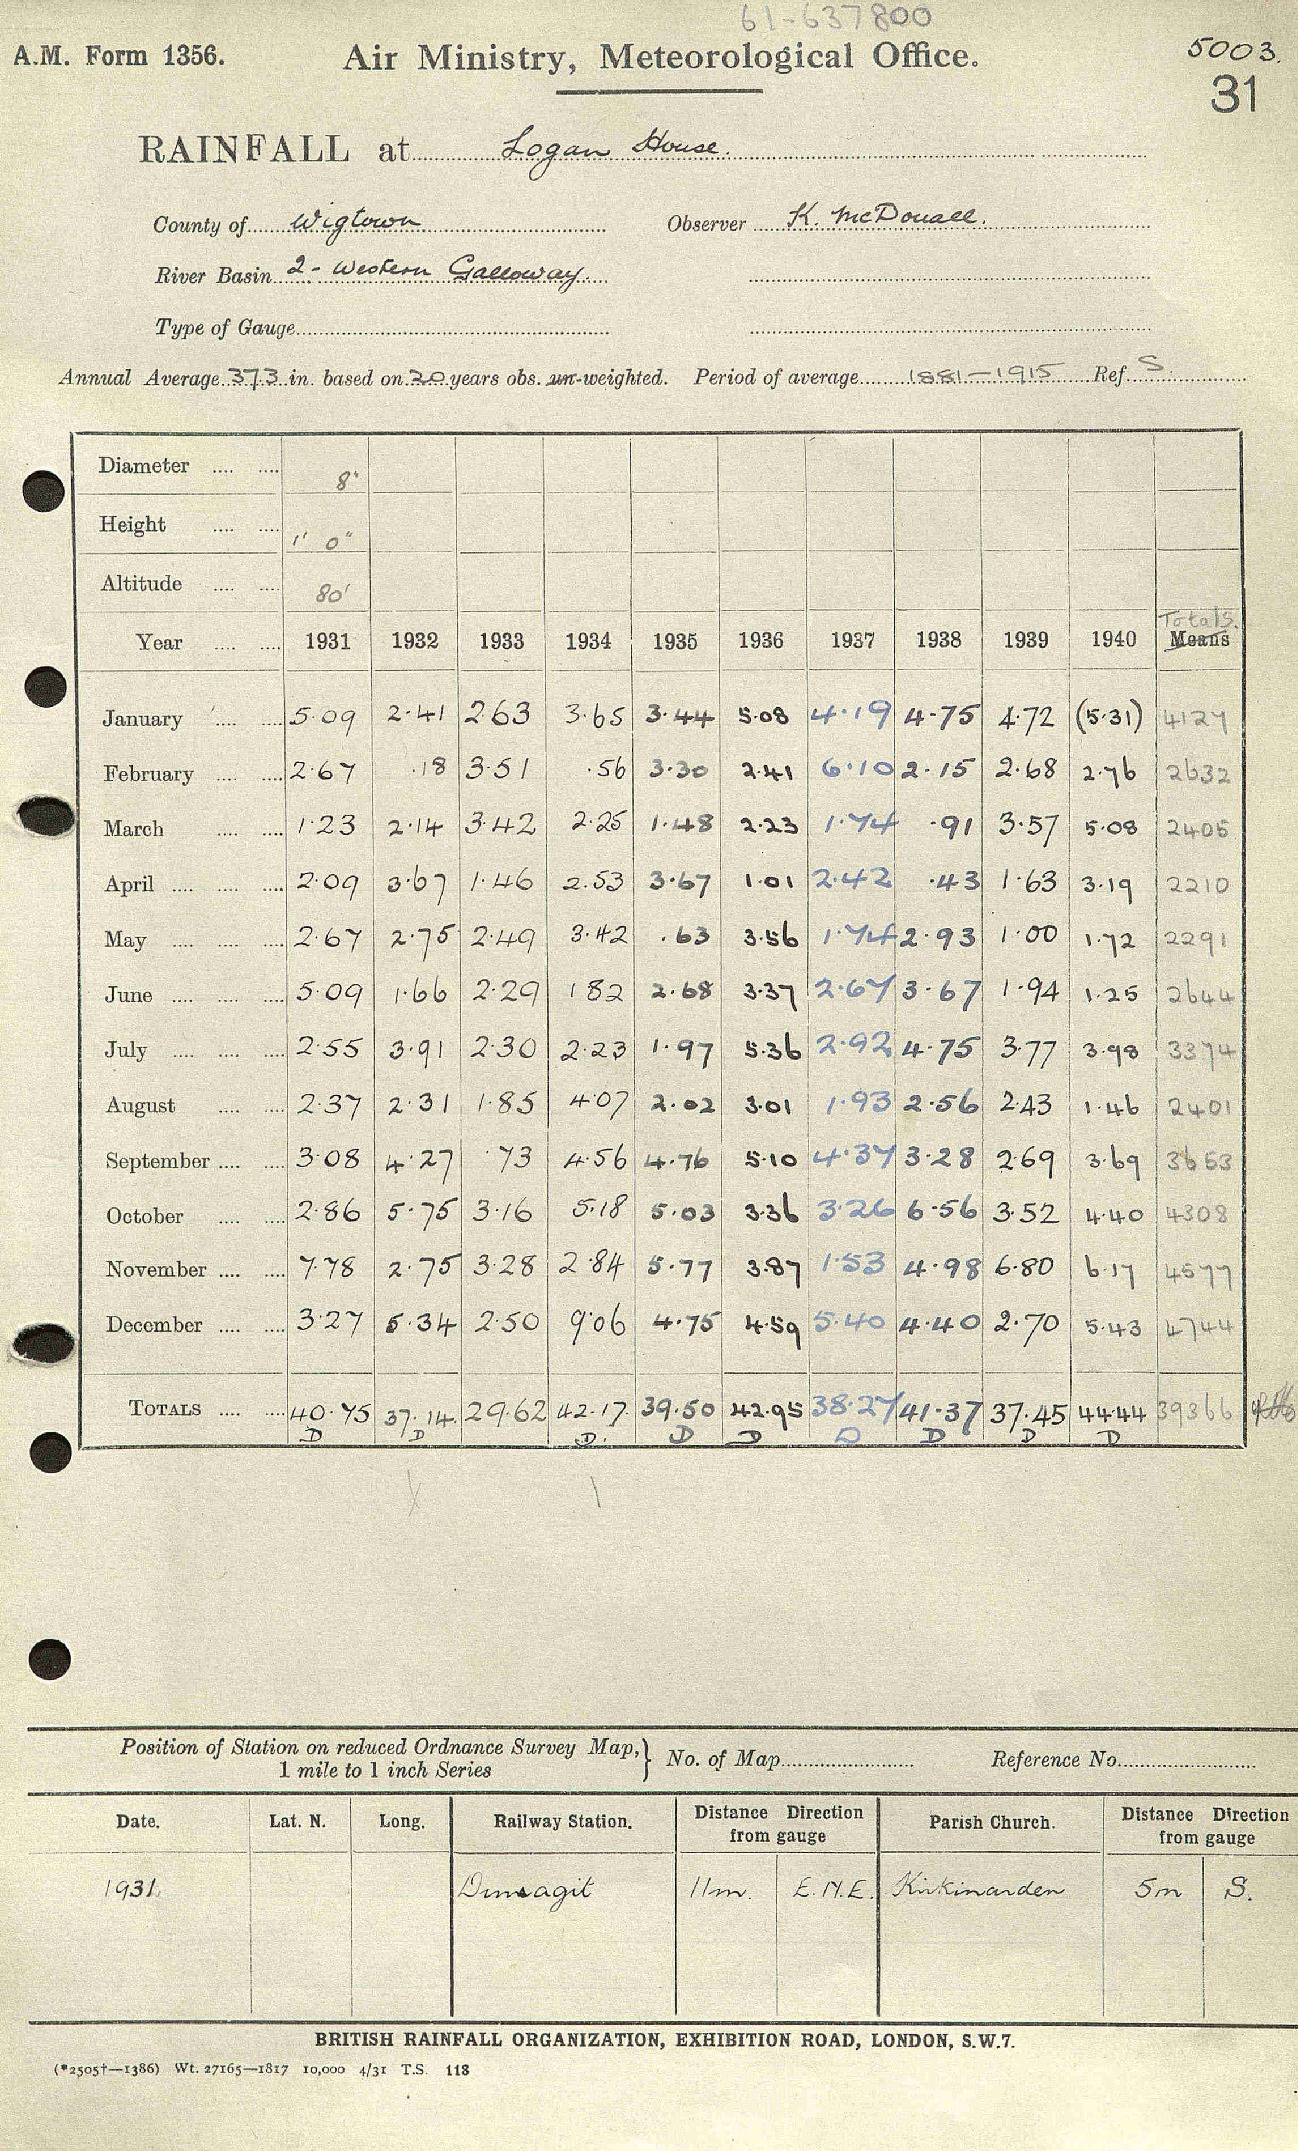 61-637800
A.M. Form 1356. Air Ministry, Meteorological Office. 5003.
31
RAINFALL at Logan House.
County of Wigtown Observer K. McDouall.
River Basin 2- Western Galloway.
Type of Gauge
Annual Average 37.3 in. based on 20 years obs. un-weighted. Period of average 1881-1915 Ref. S
Diameter 8"
Height 1' 0"
Altitude 80'
Totals.
Year 1931 1932 1933 1934 1935 1936 1937 1938 1939 1940 Means
January 5.09 2.41 2.63 3.65 3.44 5.08 4.19 4.75 4.72 (5.31) 4127
February 2.67 .18 3.51 .56 3.30 2.41 6.10 2.15 2.68 2.76 2632
March 1.23 2.14 3.42 2.25 1.48 2.23 1.74 .91 3.57 5.08 2405
April 2.09 3.67 1.46 2.53 3.67 1.01 2.42 .43 1.63 3.19 2210
May 2.67 2.75 2.49 3.42 .63 3.56 1.74 2.93 1.00 1.72 2291
June 5.09 1.66 2.29 1.82 2.68 3.37 2.67 3.67 1.94 1.25 2644
July 2.55 3.91 2.30 2.23 1.97 5.36 2.92 4.75 3.77 3.98 3374
August 2.37 2.31 1.85 4.07 2.02 3.01 1.93 2.56 2.43 1.46 2401
September 3.08 4.27 .73 4.56 4.76 5.10 4.37 3.28 2.69 3.69 3653
October 2.86 5.75 3.16 5.18 5.03 3.36 3.26 6.56 3.52 4.40 4308
November 7.78 2.75 3.28 2.84 5.77 3.87 1.53 4.98 6.80 6.17 4577
December 3.27 5.34 2.50 9.06 4.75 4.59 5.40 4.40 2.70 5.43 4744
TOTALS 40.75 37.14 29.62 42.17 39.50 42.95 38.27 41.37 37.45 44.44 39366
D D D. D D D D D D
Position of Station on reduced Ordnance Survey Map, 1 mile to 1 inch Series } No. of Map Reference No.
Date. Lat. N. Long. Railway Station. Distance Direction from gauge Parish Church. Distance Direction from gauge
1931 Dunragit 11m. E.N.E. Kirkmaiden 5m S.
BRITISH RAINFALL ORGANIZATION, EXHIBITION ROAD, LONDON, S.W.7.
(*2505†—1386) Wt. 27165—1817 10,000 4/31 T.S. 118